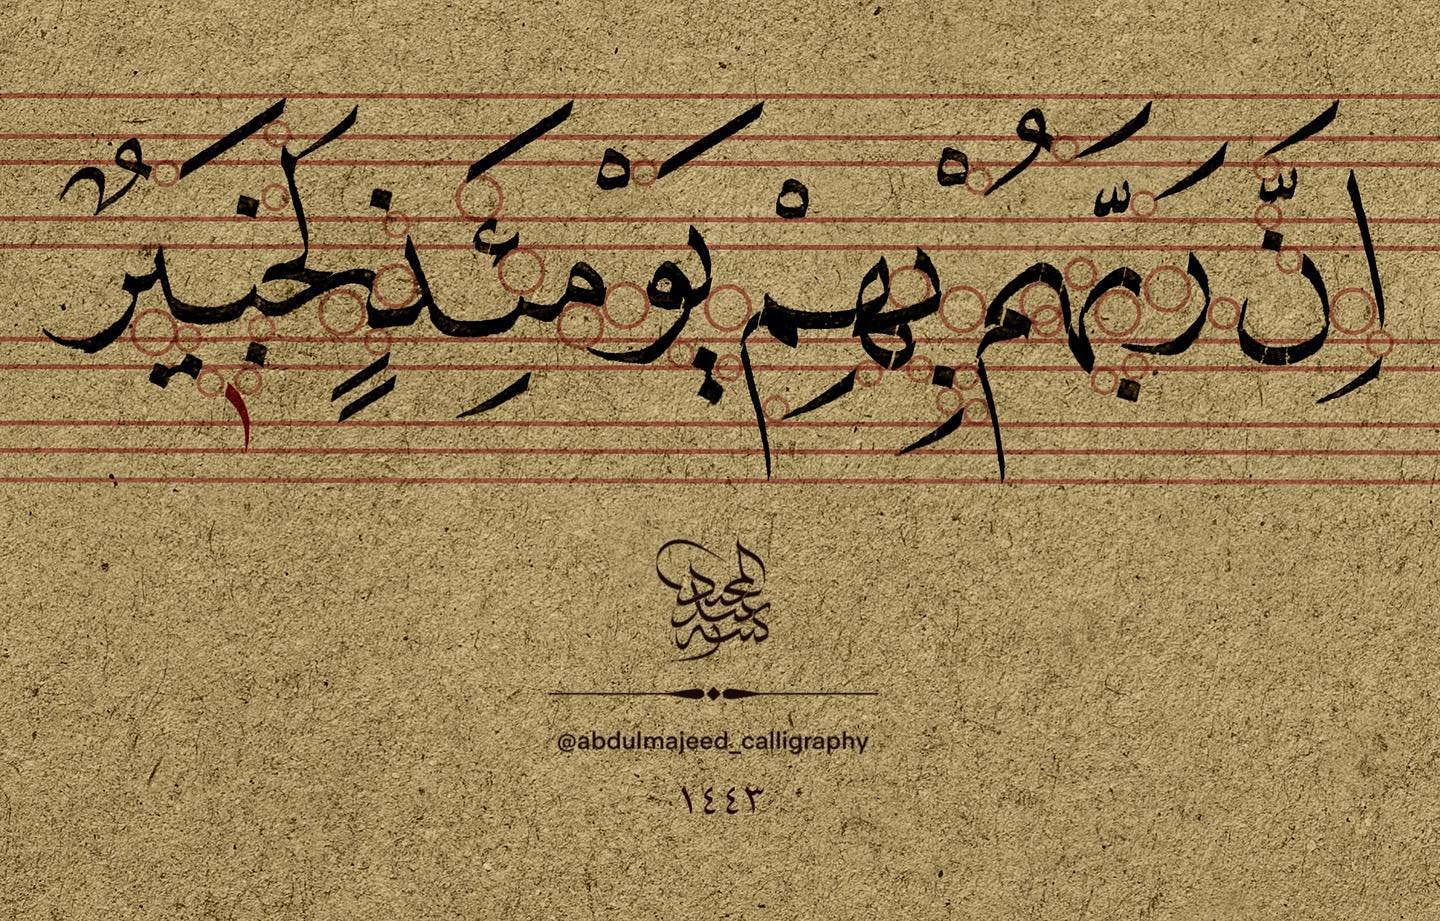 اِنَّ رَبَّهُمْ بِهِمْ يَوْمَئِذٍ لَخَبِيرٌ
كتبه عبد المجيد
@abdulmajeed_calligraphy
١٤٤٣